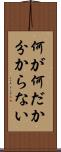 何が何だか
分からない